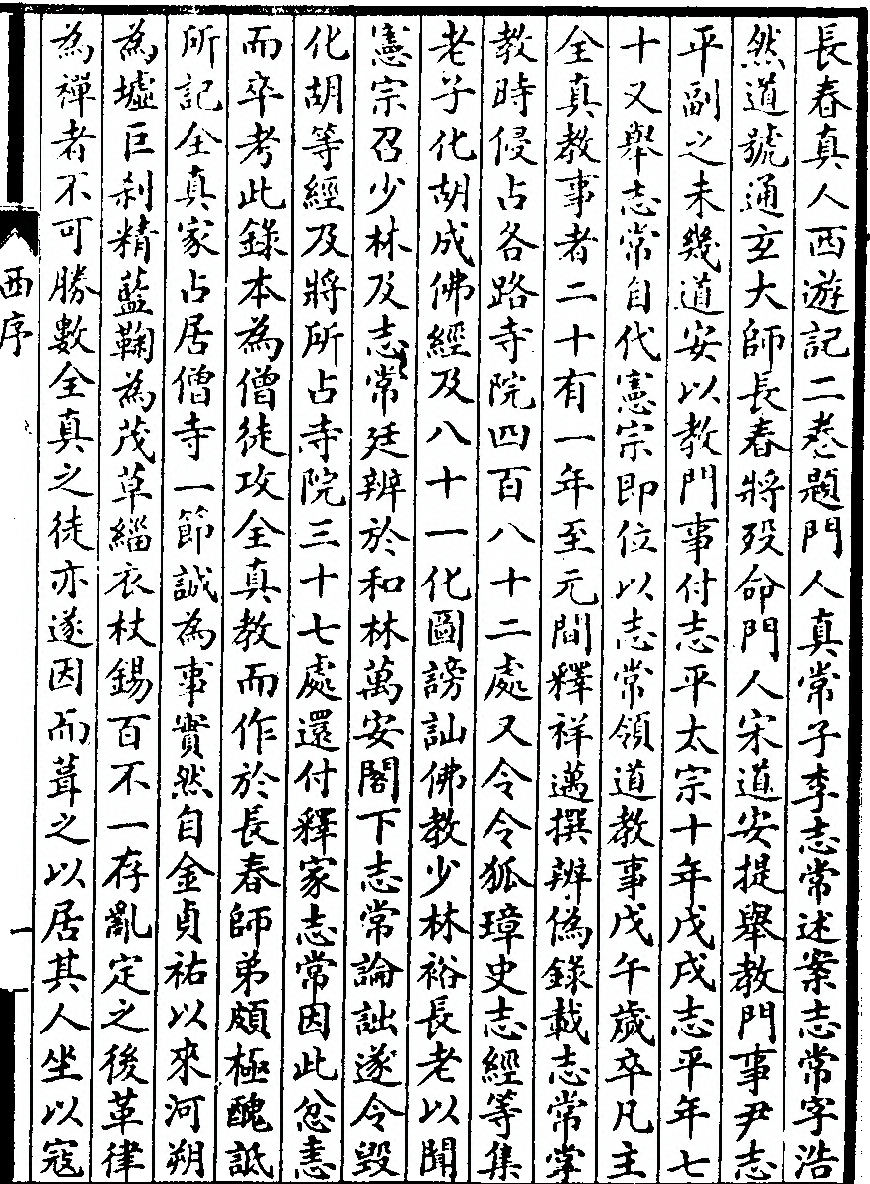 長春真人西遊記二卷題門人真常子李志常述案志常字浩
然道號通玄大師長春將歿命門人宋道安提舉教門事尹志
平副之未幾道安以教門事付志平太宗十年戊戌志平年七
十又舉志常自代憲宗即位以志常領道教事戊午歲卒凡主
全真教事者二十有一年至元間釋祥邁撰辨偽錄載志常掌
教時侵占各路寺院四百八十二處又令令狐璋史志經等集
老子化胡成佛經及八十一化圖謗訕佛教少林裕長老以聞
憲宗召少林及志常廷辨於和林萬安閣下志常論詘遂令毀
化胡等經及將所占寺院三十七處還付釋家志常因此忿恚
而卒考此錄本為僧徒攻全真教而作於長春師弟頗極醜詆
所記全真家占居僧寺一節誠為事實然自金貞祐以來河朔
為墟巨剎精藍鞠為茂草緇衣杖錫百不一存亂定之後革律
為禪者不可勝數全真之徒亦遂因而葺之以居其人坐以寇
西序
一